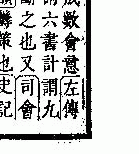 數會意左傳
六書計謂九
之也又司會
策也史記